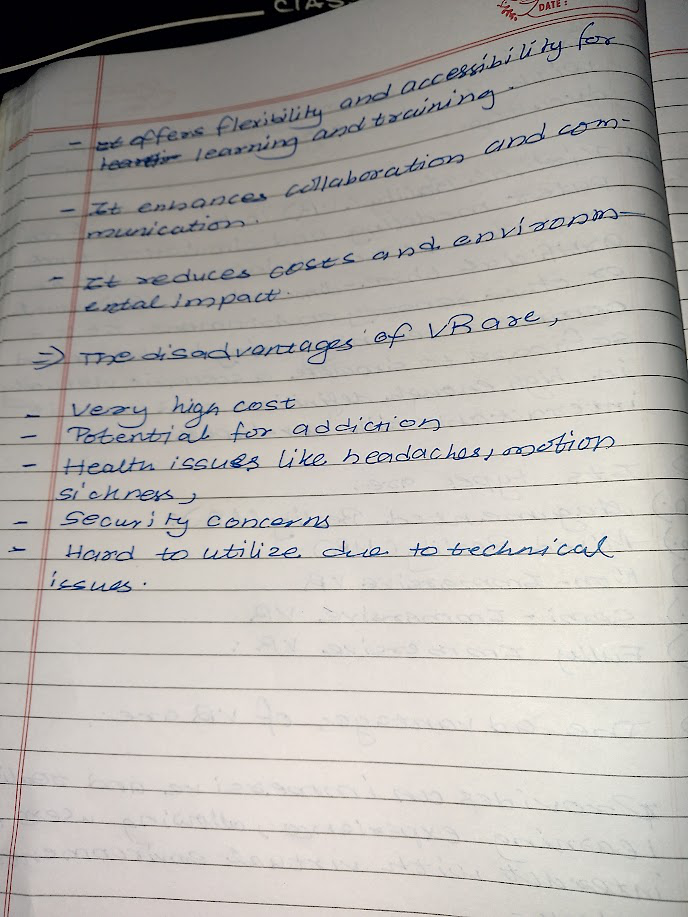 CLAS
DATE :
- It offers flexibility and accessibility for
learning and training.
- It enhances collaboration and com-
munication.
- It reduces costs and environm-
ental impact.
=> The disadvantages of VR are,
- Very high cost
- Potential for addiction
- Health issues like headaches, motion
sickness,
- Security concerns
- Hard to utilize due to technical
issues.